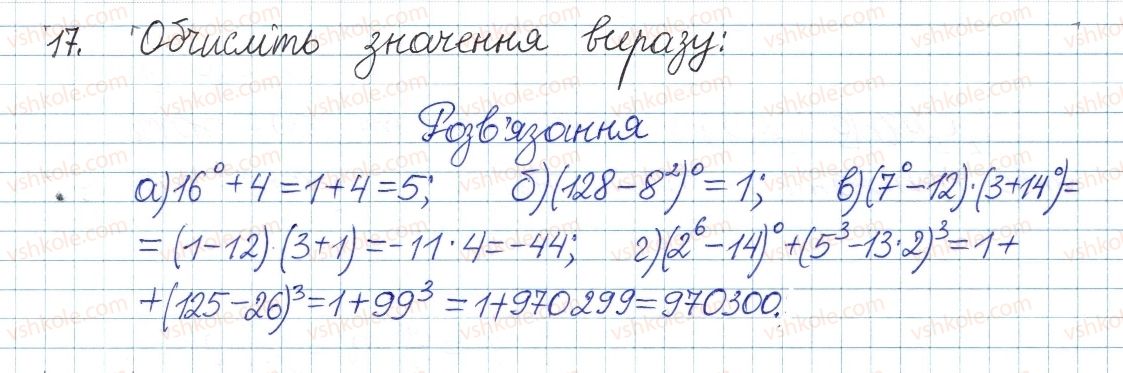 17. Обчисліть значення виразу:
Розв'язання
а) 16⁰ + 4 = 1 + 4 = 5; б) (128 − 8²)⁰ = 1; в) (7⁰ − 12) · (3 + 14⁰) =
= (1 − 12) · (3 + 1) = −11 · 4 = −44; г) (2⁶ − 14)⁰ + (5³ − 13 · 2)³ = 1 +
+ (125 − 26)³ = 1 + 99³ = 1 + 970299 = 970300.
vshkole.com